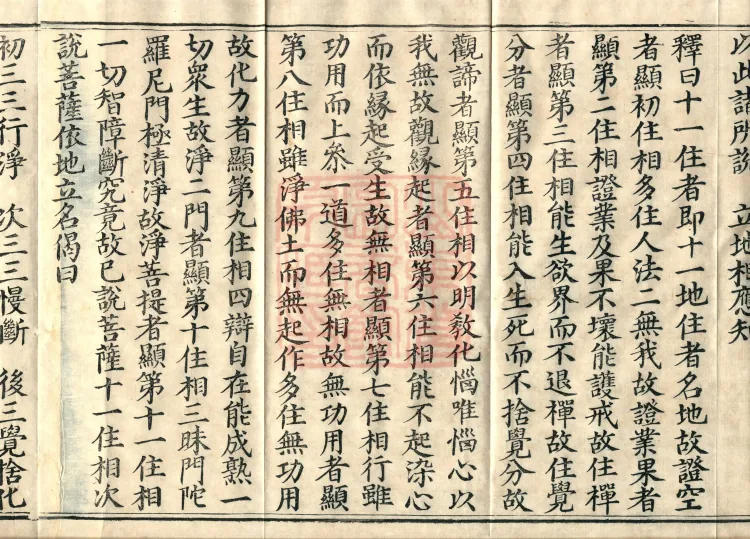 以此諸所說　立地相應知
釋曰十一住者即十一地住者名地故證空
者顯初住相多住人法二無我故證業果者
顯第二住相證業及果不壞能護戒故住禪
者顯第三住相能生欲界而不退禪故住覺
分者顯第四住相能入生死而不捨覺分故
觀諦者顯第五住相以明教化惱唯惱心以
我無故觀緣起者顯第六住相能不起染心
而依緣起受生故無相者顯第七住相行雖
功用而上叅一道多住無相故無功用者顯
第八住相雖淨佛土而無起作多住無功用
故化力者顯第九住相四辯自在能成熟一
切衆生故淨二門者顯第十住相三昧門陀
羅尼門極清淨故淨菩提者顯第十一住相
一切智障斷究竟故已說菩薩十一住相次
說菩薩依地立名偈曰
初三三行淨　次三三慢斷　後三覺捨化